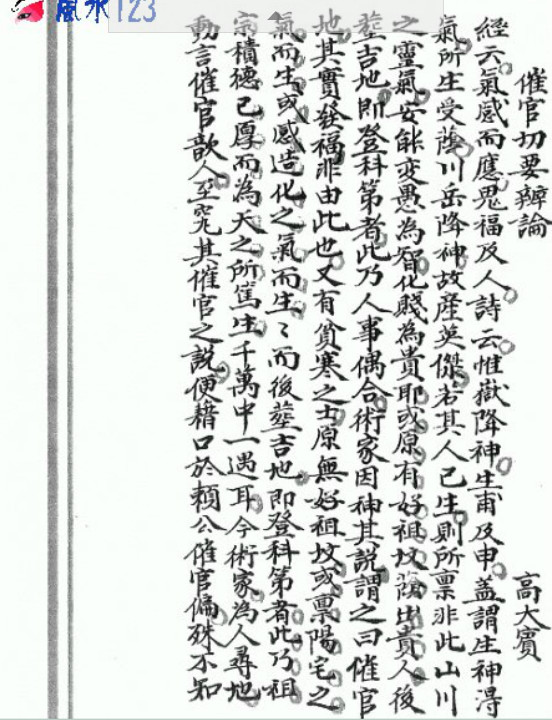 風水123
催官切要辨論
高大賓
經云氣感而應鬼福及人詩云惟嶽降神生甫及申蓋謂生神淂
氣所生受蔭川岳降神故産英傑若其人已生則所禀非此山川
之靈氣安能变愚為智化賤為貴耶或原有好祖坟蔭出貴人後
塟吉地即登科第者此乃人事偶合術家因神其説謂之曰催官
地其實發福非由此也又有貧寒之士原無好祖坟或禀陽宅之
氣而生或感造化之氣而生〻而後塟吉地即登科第者此乃祖
宗積德已厚而為天之所篤生千萬中一遇耳今術家為人尋地
動言催官歆人至究其催官之説便藉口於賴公催官偏殊不知